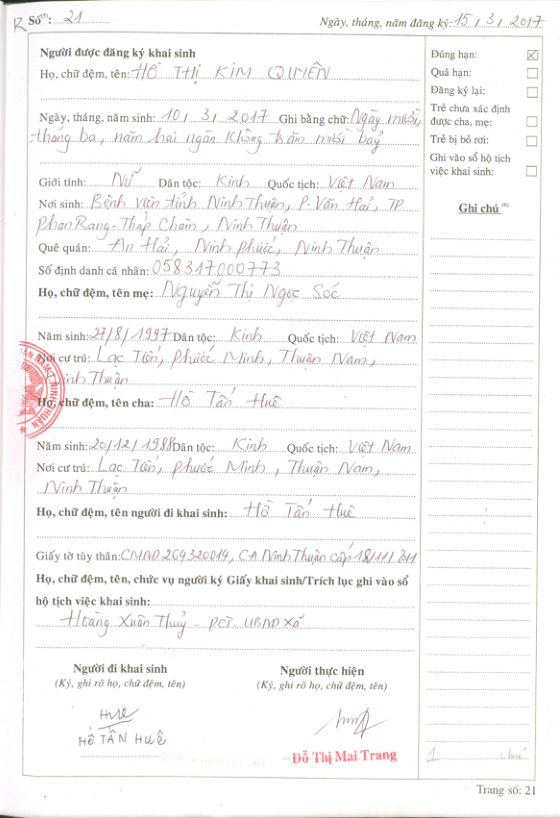 R Số⁽⁵⁾: 21
Ngày, tháng, năm đăng ký: 15 / 3 / 2017
Người được đăng ký khai sinh
Họ, chữ đệm, tên: HỒ THỊ KIM QUYÊN
Ngày, tháng, năm sinh: 10 / 3 / 2017 Ghi bằng chữ: Ngày mười,
tháng ba, năm hai ngàn không trăm mười bảy
Giới tính: Nữ Dân tộc: Kinh Quốc tịch: Việt Nam
Nơi sinh: Bệnh viện tỉnh Ninh Thuận, P. Văn Hải, TP
Phan Rang - Tháp Chàm, Ninh Thuận
Quê quán: An Hải, Ninh Phước, Ninh Thuận
Số định danh cá nhân: 058317000773
Họ, chữ đệm, tên mẹ: Nguyễn Thị Ngọc Sóc
Năm sinh: 27/8/1997 Dân tộc: Kinh Quốc tịch: Việt Nam
Nơi cư trú: Lạc Tiến, Phước Minh, Thuận Nam,
Ninh Thuận
Họ, chữ đệm, tên cha: Hồ Tấn Huê
Năm sinh: 20/12/1988 Dân tộc: Kinh Quốc tịch: Việt Nam
Nơi cư trú: Lạc Tiến, Phước Minh, Thuận Nam,
Ninh Thuận
Họ, chữ đệm, tên người đi khai sinh: Hồ Tấn Huê
Giấy tờ tùy thân: CMND 264320014, CA Ninh Thuận cấp 18/11/2011
Họ, chữ đệm, tên, chức vụ người ký Giấy khai sinh/Trích lục ghi vào sổ
hộ tịch việc khai sinh:
Hoàng Xuân Thuỷ - PCT. UBND xã
Người đi khai sinh
(Ký, ghi rõ họ, chữ đệm, tên)
Huê
HỒ TẤN HUÊ
Người thực hiện
(Ký, ghi rõ họ, chữ đệm, tên)
Đỗ Thị Mai Trang
Đúng hạn: ☒
Quá hạn: ☐
Đăng ký lại: ☐
Trẻ chưa xác định
được cha, mẹ: ☐
Trẻ bị bỏ rơi: ☐
Ghi vào sổ hộ tịch
việc khai sinh: ☐
Ghi chú ⁽⁶⁾
Trang số: 21